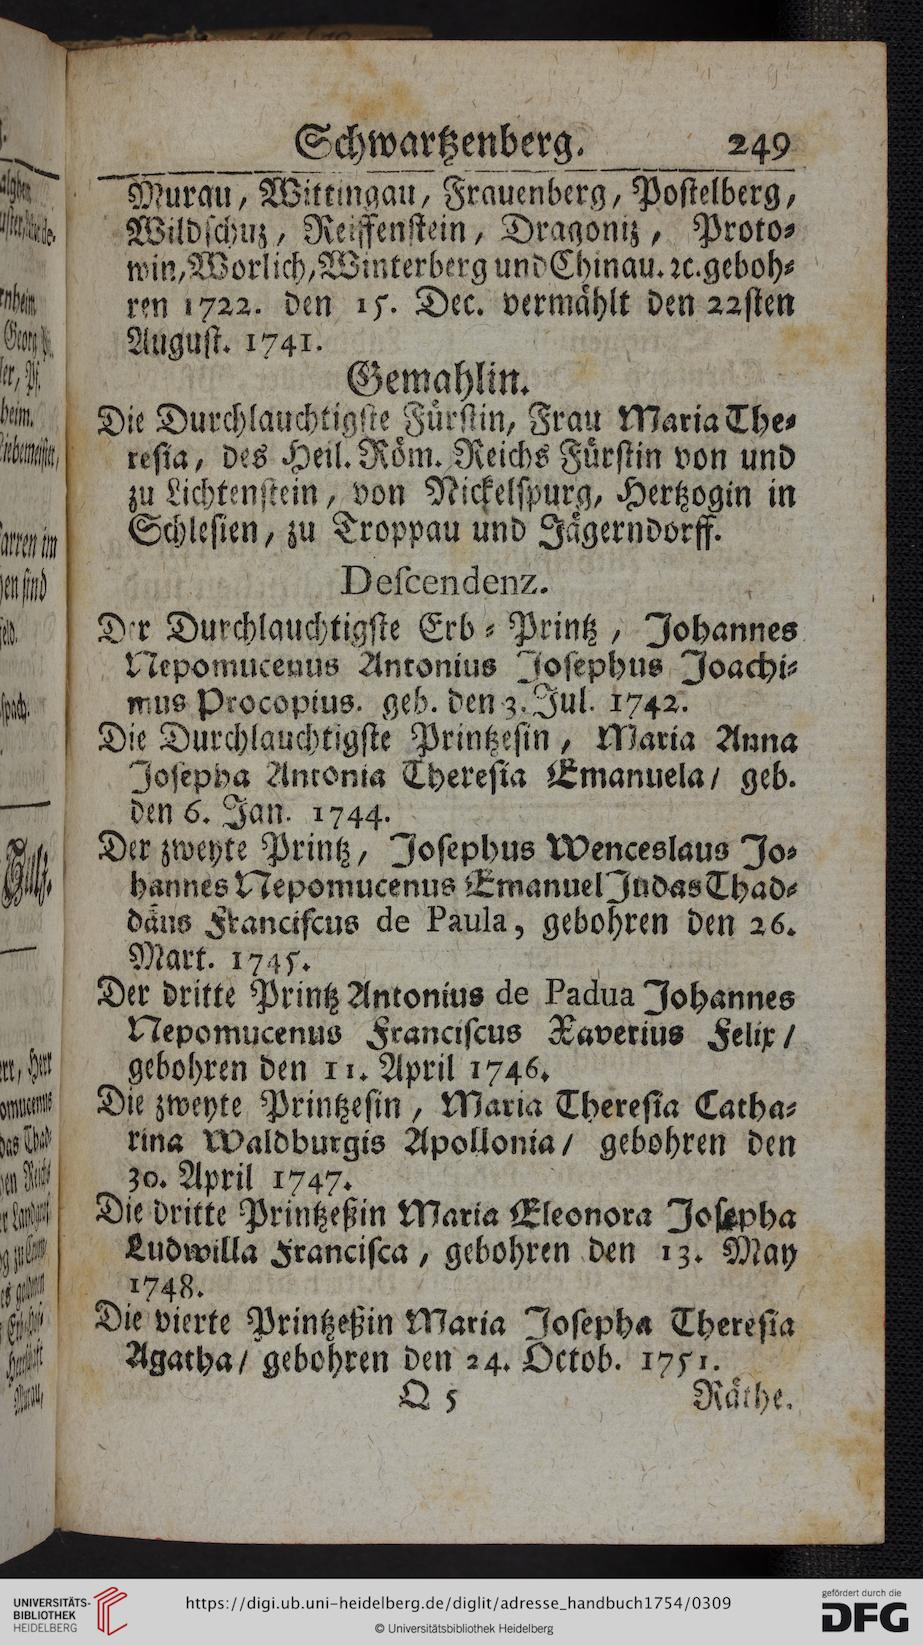 Schwartzenberg. 249
Murau, Wittingau, Frauenberg, Postelberg,
Wildſchuz, Reiffenſtein, Dragoniz, Proto⸗
win, Worlich, Winterberg und Chinau. ꝛc. geboh⸗
ren 1722. den 15. Dec. vermählt den 22ſten
Auguſt. 1741.
Gemahlin.
Die Durchlauchtigſte Fürſtin, Frau Maria The⸗
reſia, des Heil. Röm. Reichs Fürſtin von und
zu Lichtenſtein, von Nickelſpurg, Hertzogin in
Schleſien, zu Troppau und Jägerndorff.
Deſcendenz.
Der Durchlauchtigſte Erb⸗Printz, Johannes
Nepomucenus Antonius Joſephus Joachi⸗
mus Procopius. geb. den 3. Jul. 1742.
Die Durchlauchtigſte Printzeſin, Maria Anna
Joſepha Antonia Thereſia Emanuela/ geb.
den 6. Jan. 1744.
Der zweyte Printz, Joſephus Wenceslaus Jo⸗
hannes Nepomucenus Emanuel Judas Thad⸗
däus Franciſcus de Paula, gebohren den 26.
Mart. 1745.
Der dritte Printz Antonius de Padua Johannes
Nepomucenus Franciſcus Xaverius Felix/
gebohren den 11. April 1746.
Die zweyte Printzeſin, Maria Thereſia Catha⸗
rina Waldburgis Apollonia/ gebohren den
30. April 1747.
Die dritte Printzeßin Maria Eleonora Joſepha
Ludwilla Franciſca, gebohren den 13. May
1748.
Die vierte Printzeßin Maria Joſepha Thereſia
Agatha/ gebohren den 24. Octob. 1751.
Q 5 Räthe.
UNIVERSITÄTS-
BIBLIOTHEK
HEIDELBERG
https://digi.ub.uni-heidelberg.de/diglit/adresse_handbuch1754/0309
© Universitätsbibliothek Heidelberg
gefördert durch die
DFG